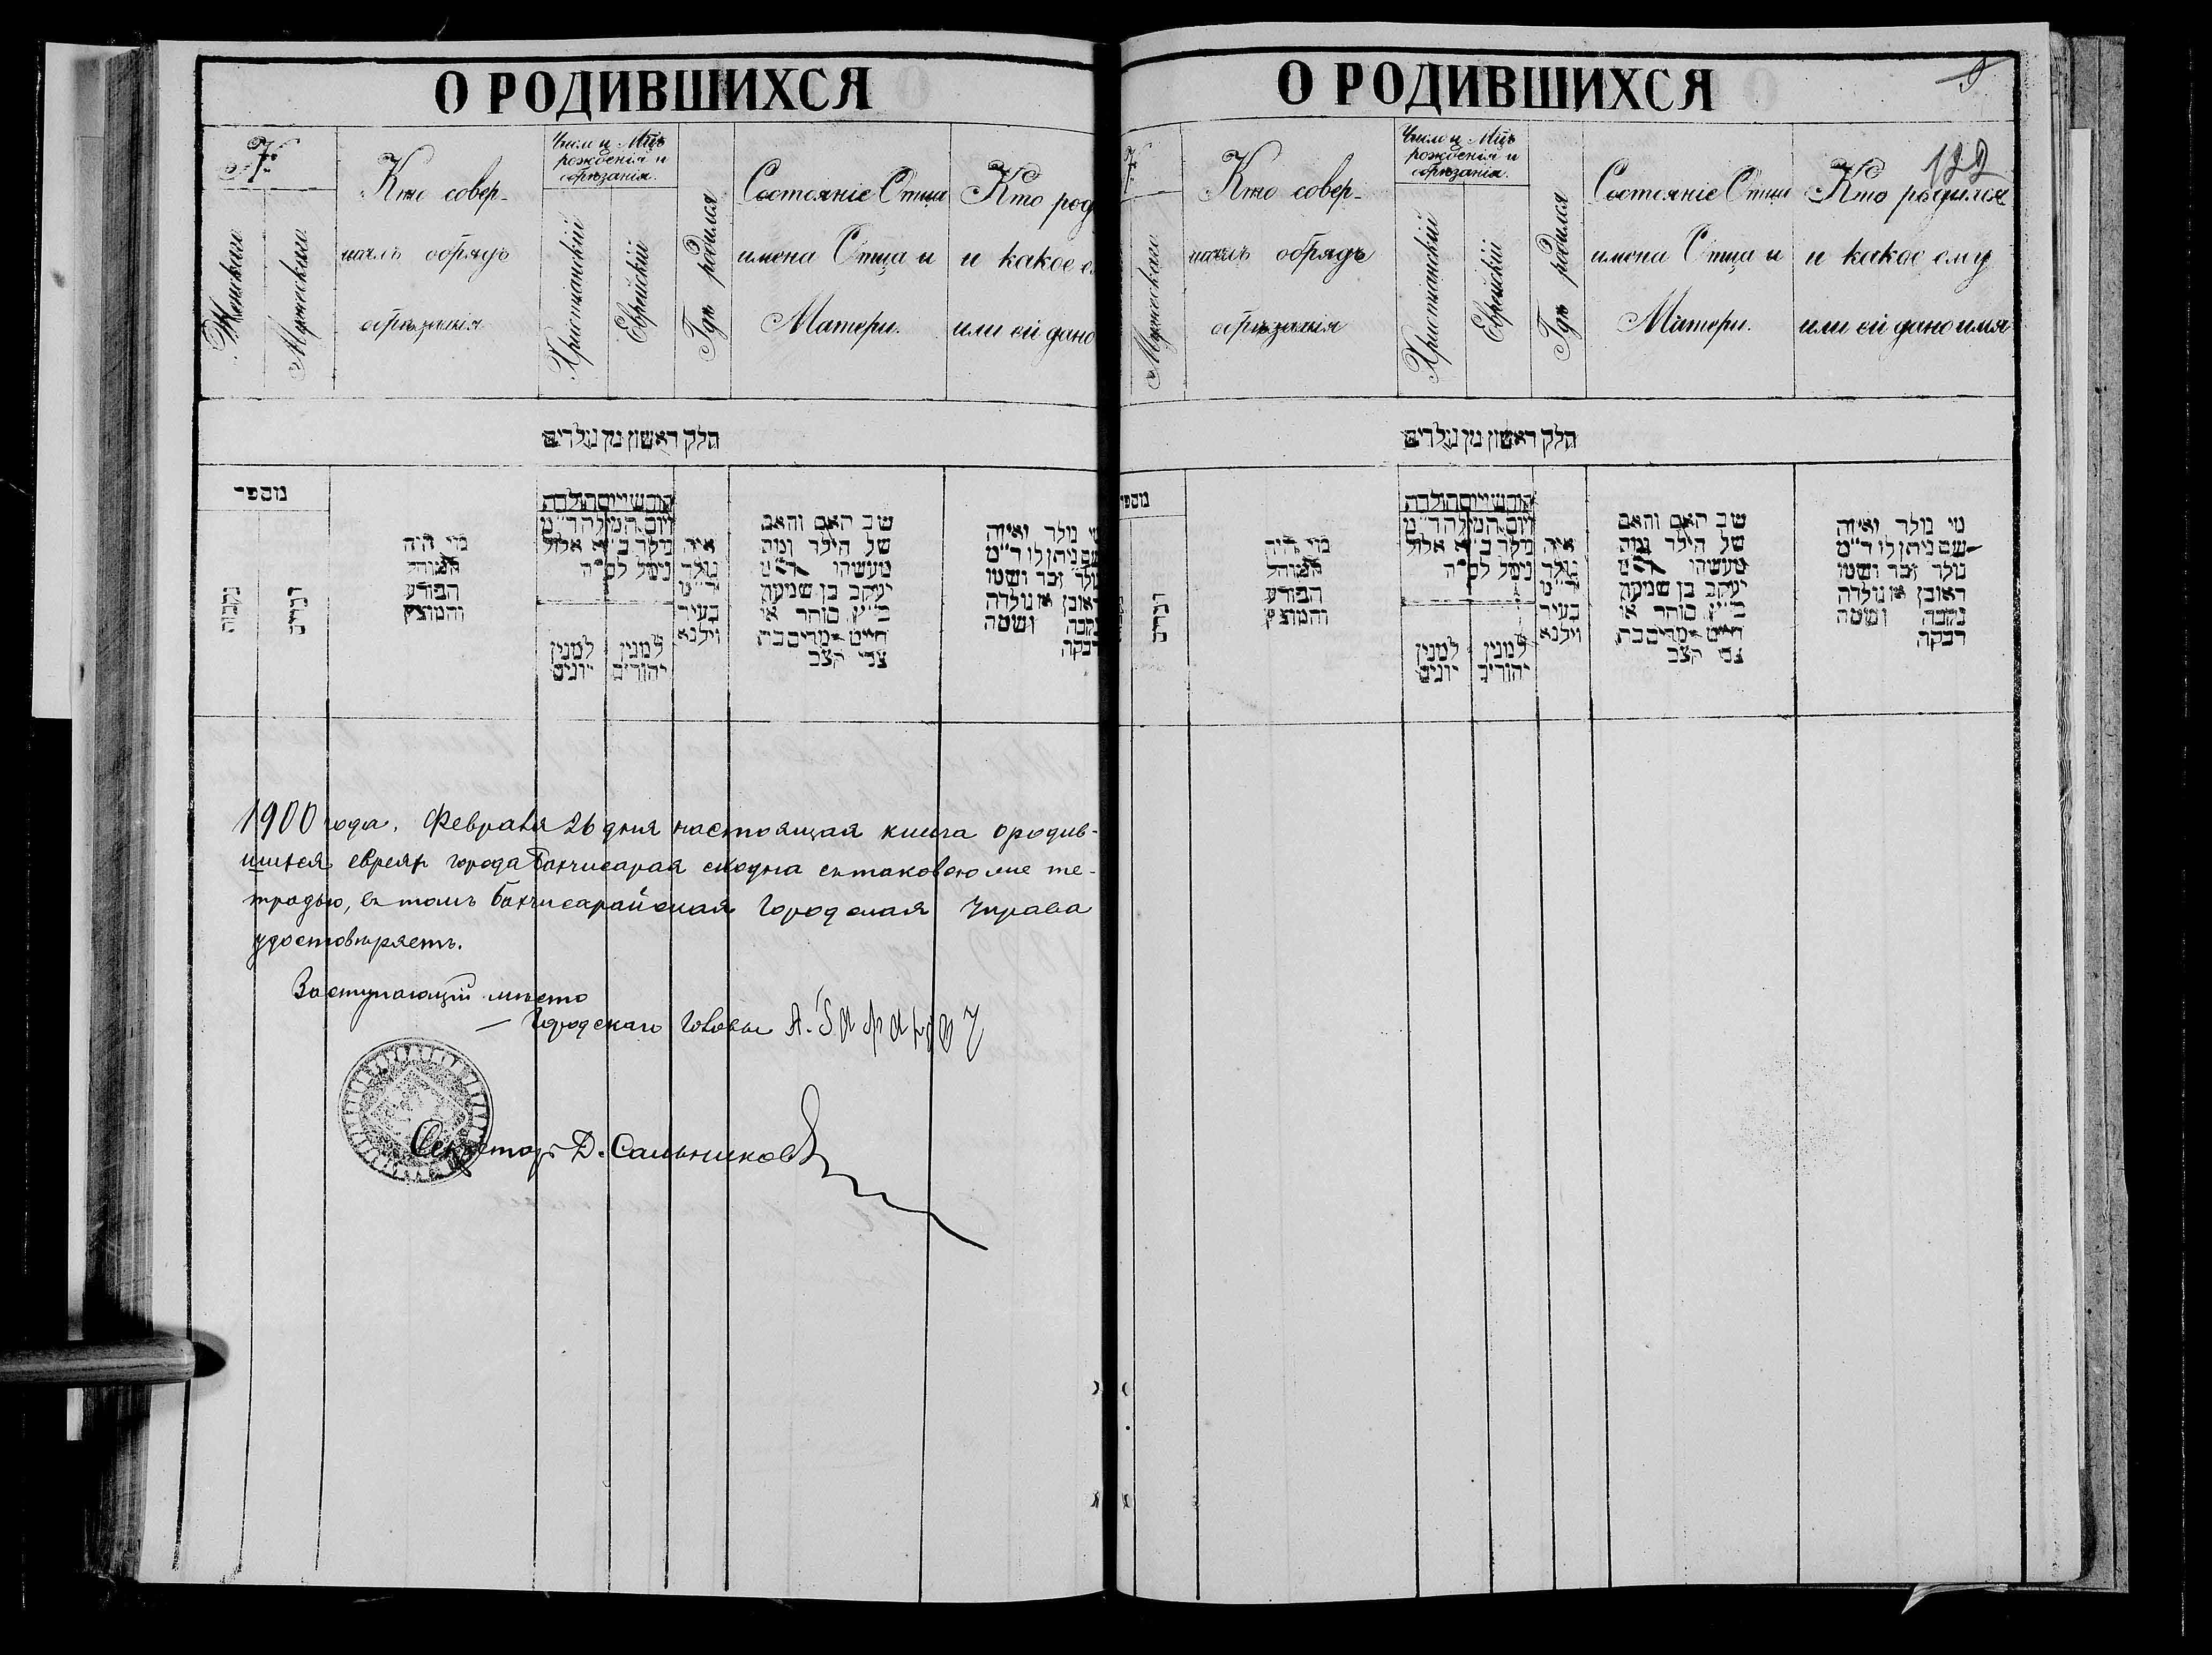 О РОДИВШИХСЯ
№
Женскаго
Мужескаго
Кто совер-
шалъ обрядъ
обрѣзанія
Число и Мцъ
рожденія и
обрѣзанія.
Христіанскій
Еврейскій
Гдѣ родился
Состояніе Отца
имена Отца и
Матери.
Кто род
и какое е
или ей дано
חלק ראשון מן נולדים
מספר
נקבות
זכרים
מי היה
המוהל
הפורע
והמוצץ
חודש ויום הולדת
ויום המילה ד״מ
נולד ב״א אלול
נימל לס״ה
למנין
יונים
למנין
יהודים
איה
נולד
ד״מ
בעיר
וילנא
שב האם והאב
של הילד ומה
מעשהו ד״מ
יעקב בן שמעון
כ״ץ סוחר או
חייט מרים בת
צבי קצב
מי נולד ואיזה
שם ניתן לו ד״מ
נולד זכר ושמו
ראובן או נולדה
נקבה ושמה
רבקה
1900 года. Февраля 26 дня настоящая книга о родив-
шихся евреях города Бахчисарая сходна съ таковою же те-
традью, въ томъ Бахчисарайская Городская Управа
удостовѣряетъ.
Заступающій мѣсто
Городскаго Головы А.
Секретарь Д. Сальников
О РОДИВШИХСЯ
9
122
№
Мужескаго
Кто совер-
шалъ обрядъ
обрѣзанія
Число и Мцъ
рожденія и
обрѣзанія.
Христіанскій
Еврейскій
Гдѣ родился
Состояніе Отца
имена Отца и
Матери.
Кто родился
и какое ему
или ей дано имя
חלק ראשון מן נולדים
מספר
זכרים
מי היה
המוהל
הפורע
והמוצץ
חודש ויום הולדת
ויום המילה ד״מ
נולד ב״א אלול
נימל לס״ה
למנין
יונים
למנין
יהודים
איה
נולד
ד״מ
בעיר
וילנא
שב האם והאב
של הילד ומה
מעשהו ד״מ
יעקב בן שמעון
כ״ץ סוחר או
חייט מרים בת
צבי קצב
מי נולד ואיזה
שם ניתן לו ד״מ
נולד זכר ושמו
ראובן או נולדה
נקבה ושמה
רבקה